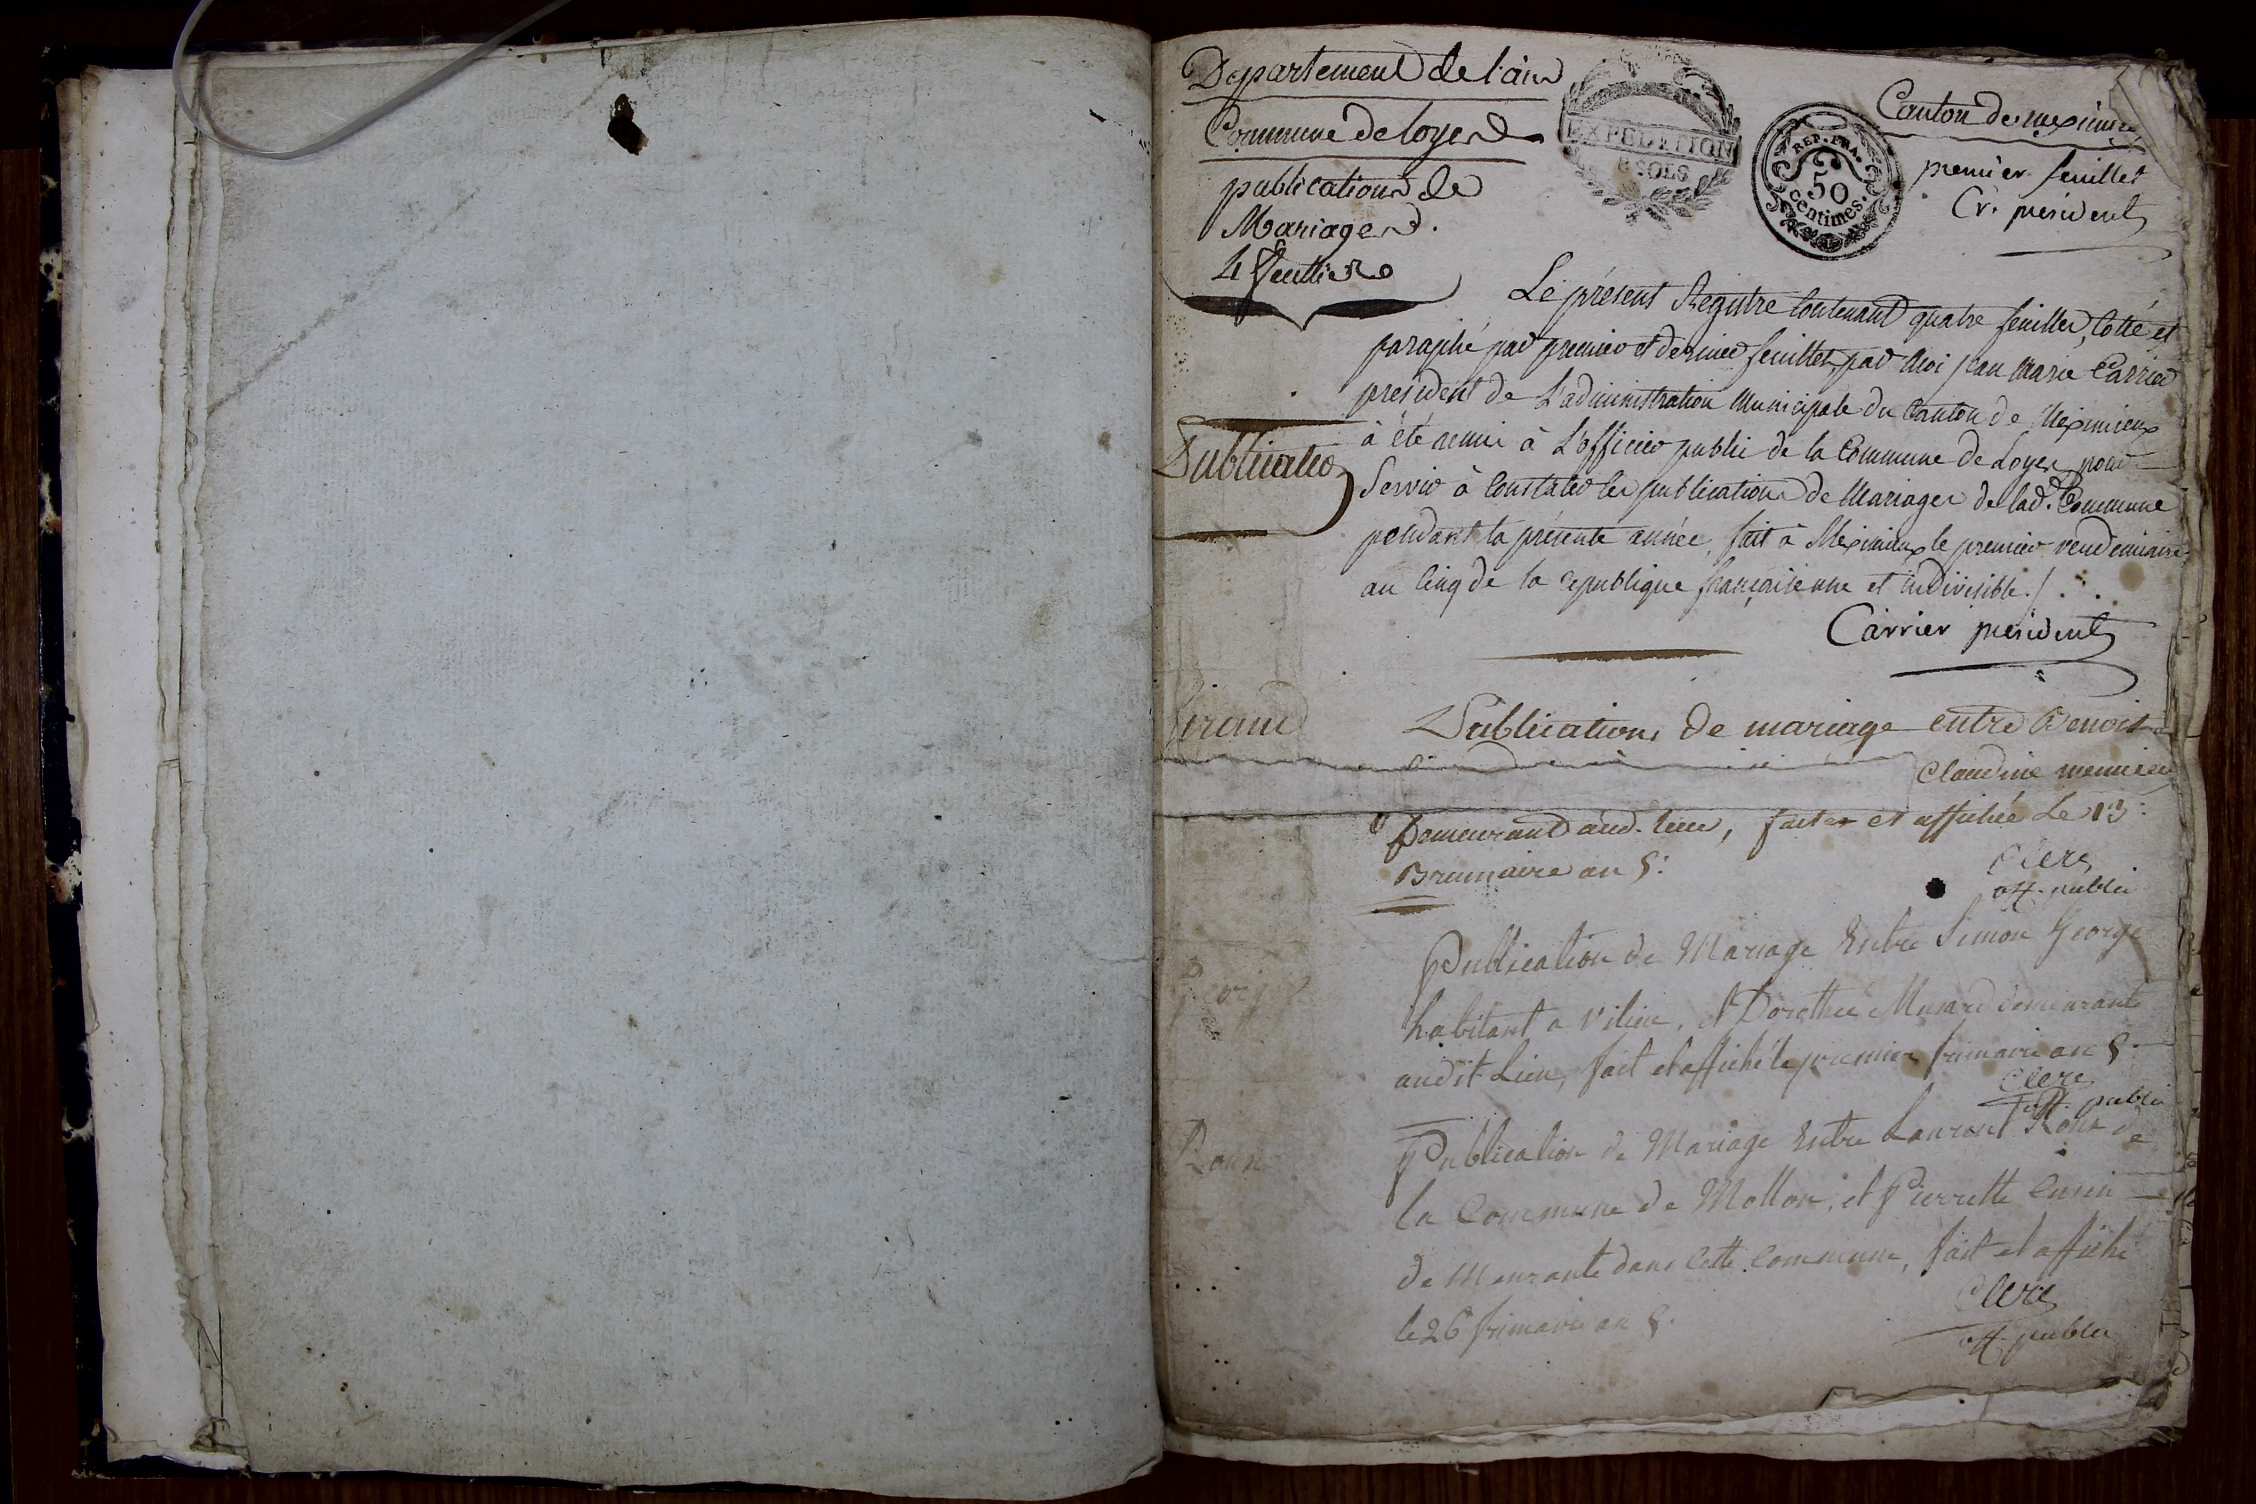 Departement de l'ain
Commune de loyes
publications de
Mariages.
4 feuilles
EXPEDITION
8 SOLS
REP. FRA.
50
centimes.
Canton de meximieux
premier feuillet
Cr. president
Le présent Registre Contenant quatre feuilles, Cotté et
paraphé par premier et dernier feuillets, par Moi jean Marie Carrier
president de L'administration Municipale du Canton de Meximieux
à été remis à L'officier public de la Commune de Loyes pour
Servir à Constater les publications de Mariages de lad. Commune
pendant la présente année, fait à Meximieux le premier vendemiaire
an Cinq de la republique françaisenne et indivisible ./.
Carrier president
Publicatio
Giraud
Publications de mariage entre Benoit
Claudine
Demeurant aud. lieu, faites et affichée Le 13
Brumaire an 5:
Clerc
off. public
George
Publication de Mariage Entre Simon George
habitant a Vilieu, et Dorothée demeurant
audit Lieu, fait et affiché le premier frimaire an 5.
Clerc
off. public
Roux
Publication de Mariage Entre Laurent Roux de
la Commune de Mollon, et Pierrette
de Meurante dans Cette Commune, fait et affiché
le 26 frimaire an 5.
Clerc
off. public